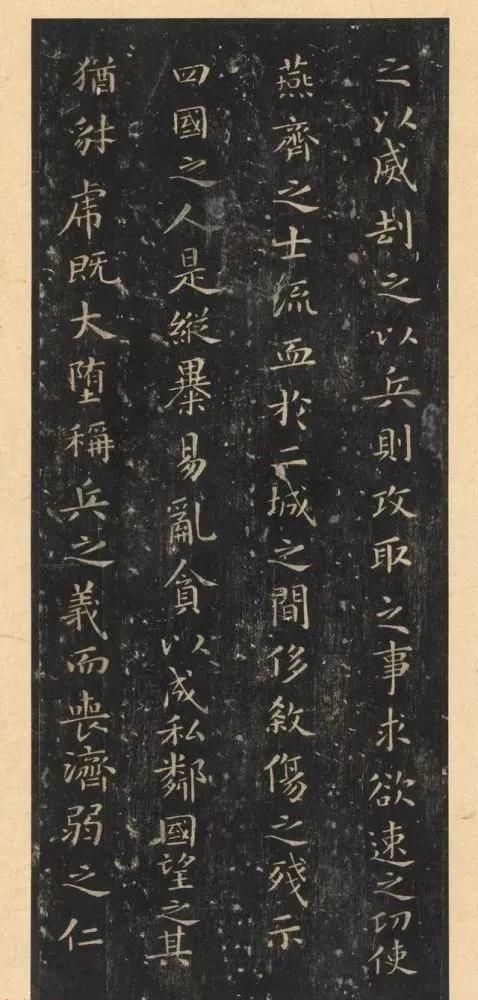 之以威刼之以兵則攻取之事求欲速之功使
燕齊之士流血於二城之間侈敘傷之殘示
四國之人是縱暴易亂貪以成私鄰國望之其
猶豺虎既大墮稱兵之義而喪濟弱之仁